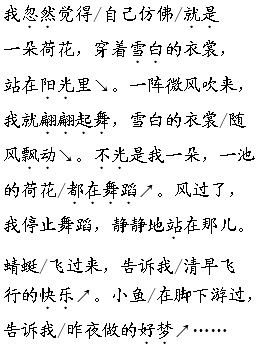 我忽然觉得/自己仿佛/就是
一朵荷花，穿着雪白的衣裳，
站在阳光里↘。一阵微风吹来，
我就翩翩起舞，雪白的衣裳/随
风飘动↘。不光是我一朵，一池
的荷花/都在舞蹈↗。风过了，
我停止舞蹈，静静地站在那儿。
蜻蜓/飞过来，告诉我/清早飞
行的快乐↗。小鱼/在脚下游过，
告诉我/昨夜做的好梦↗……